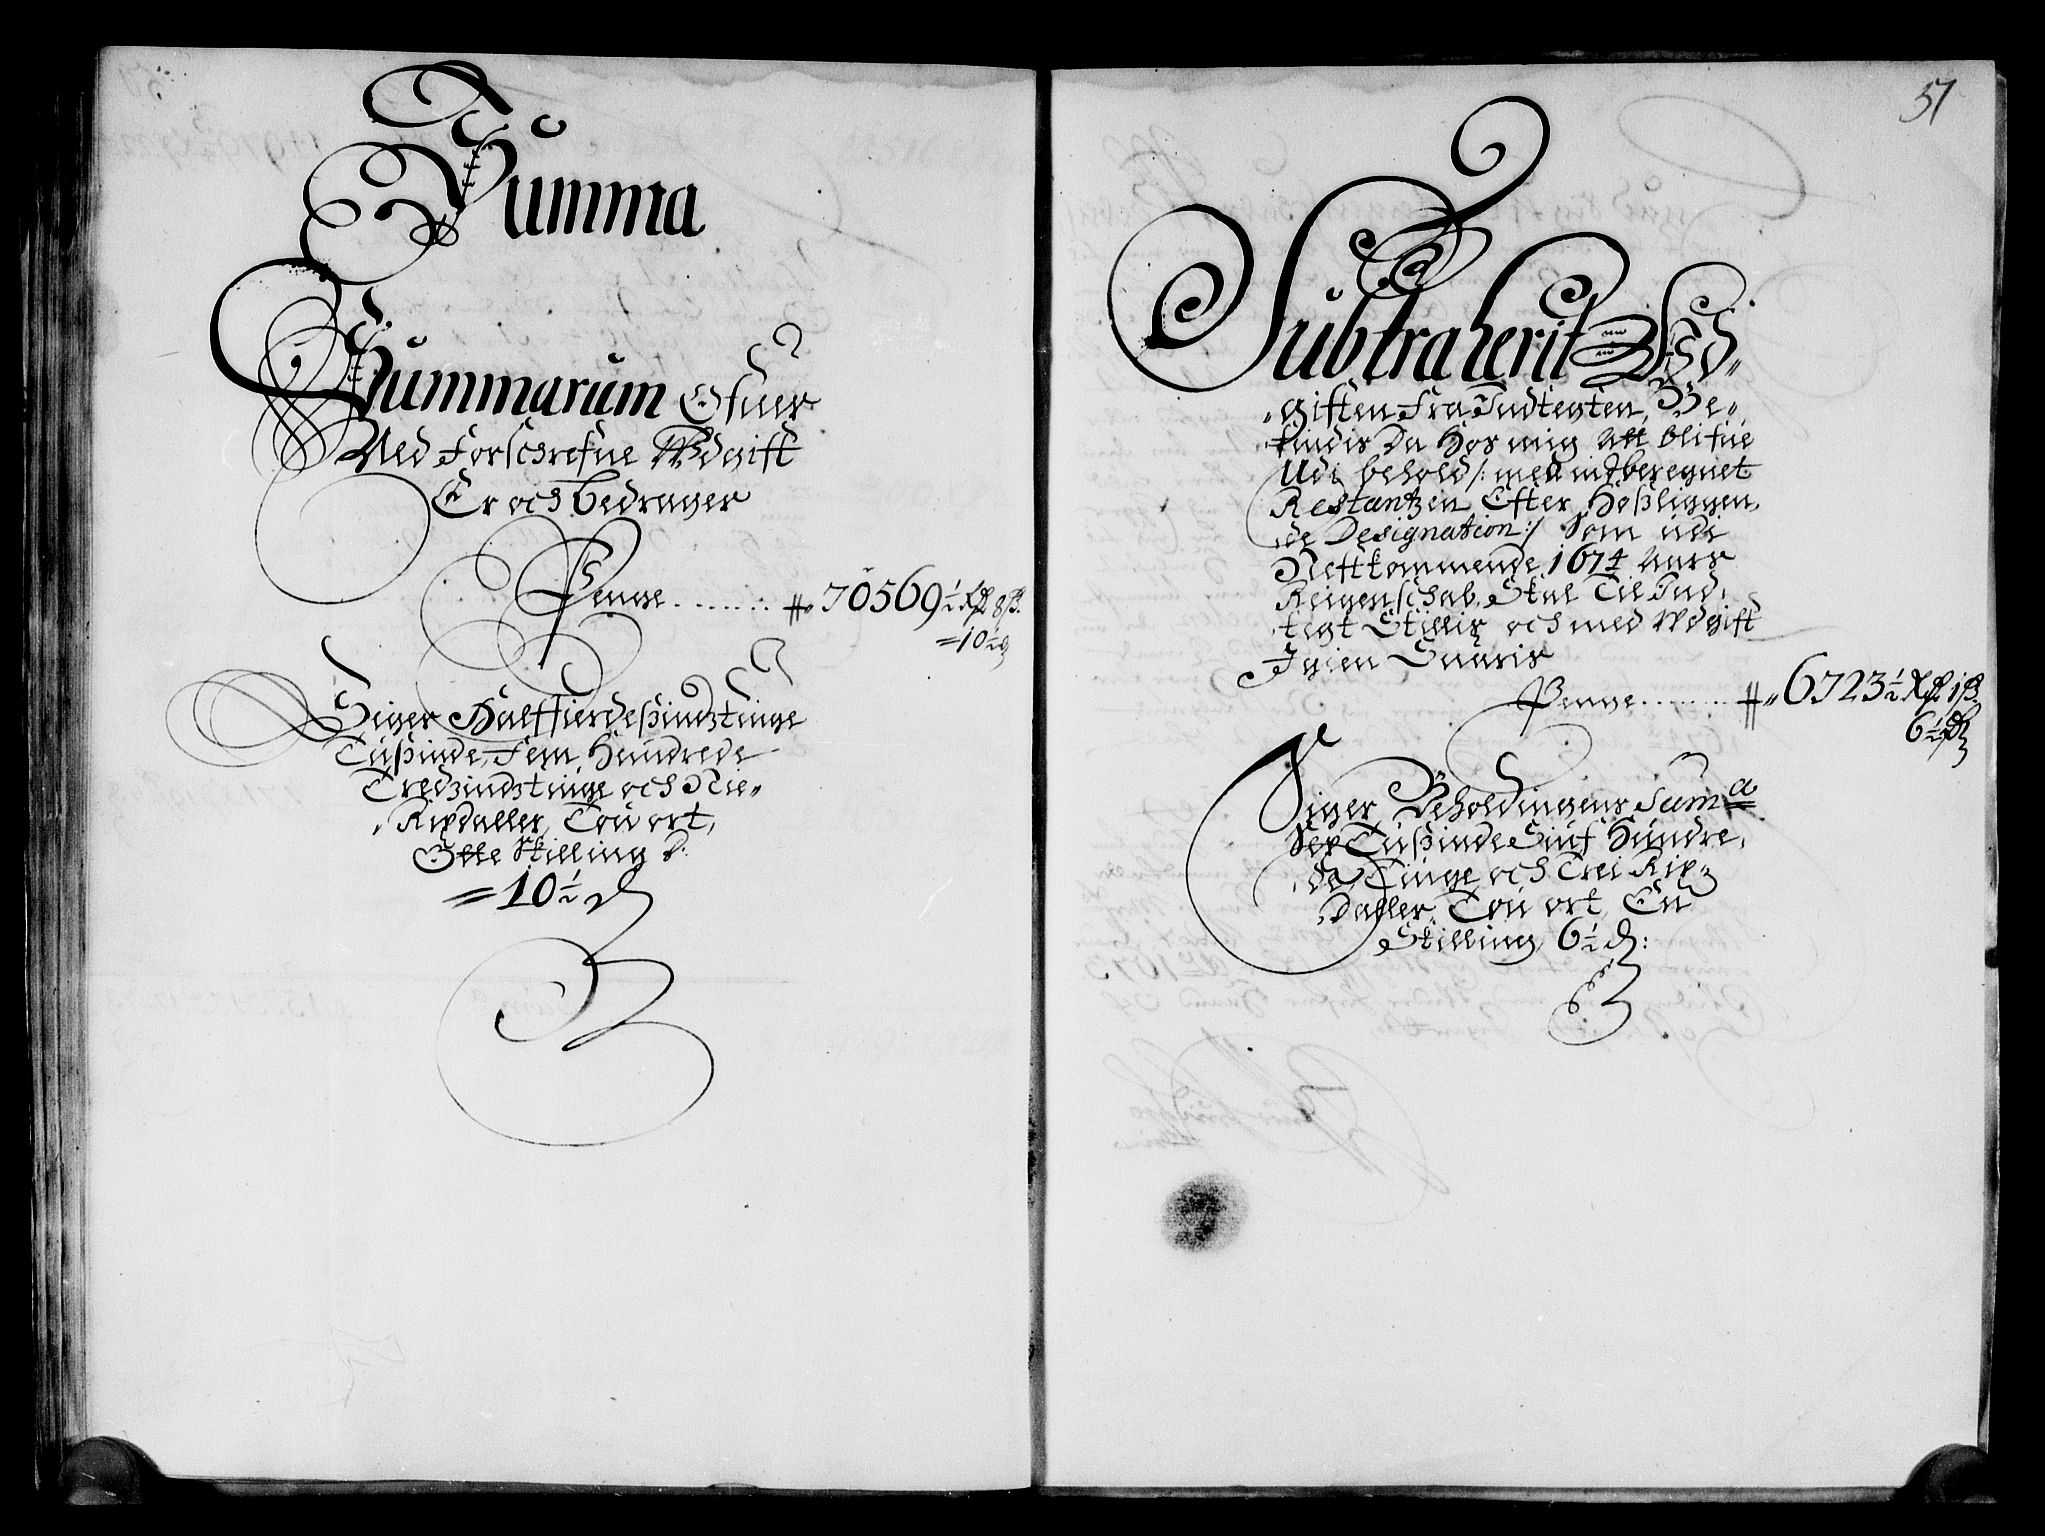 Summa
Summarum Ofuer
Ued Forschrefne Wdgift
Er och bedrager
Penge ........ 70569½ Rdr 8 ß
= 10½ d
Siger Halffierdesindztinge
Tusinde, Fem Hundrede
Tredzindztinge och Nie
Rixdaller, Tou ort,
Otte Skilling &:
= 10½ d
57
Subtraherit Wd=
giften fra Indtegten, Be=
findis da Hos mig att blifue
Udi behold /: med indberegnet
Restantzen Efter Hosliggen,
de Designation :/ Som udi
Nestkommende 1674 Aars
Reigenschab, Skal Til Ind,
tegt Stillis och med Wdgift
Igien Suaris
Penge ........ 6723½ Rdr 1 ß
6½ d
Siger Beholdingens Sum̅a
Sex Tusinde Siuf Hundre,
de, Tiuge och Trei Rix=
Daller, Tou ort, En
Skilling, 6½ d: